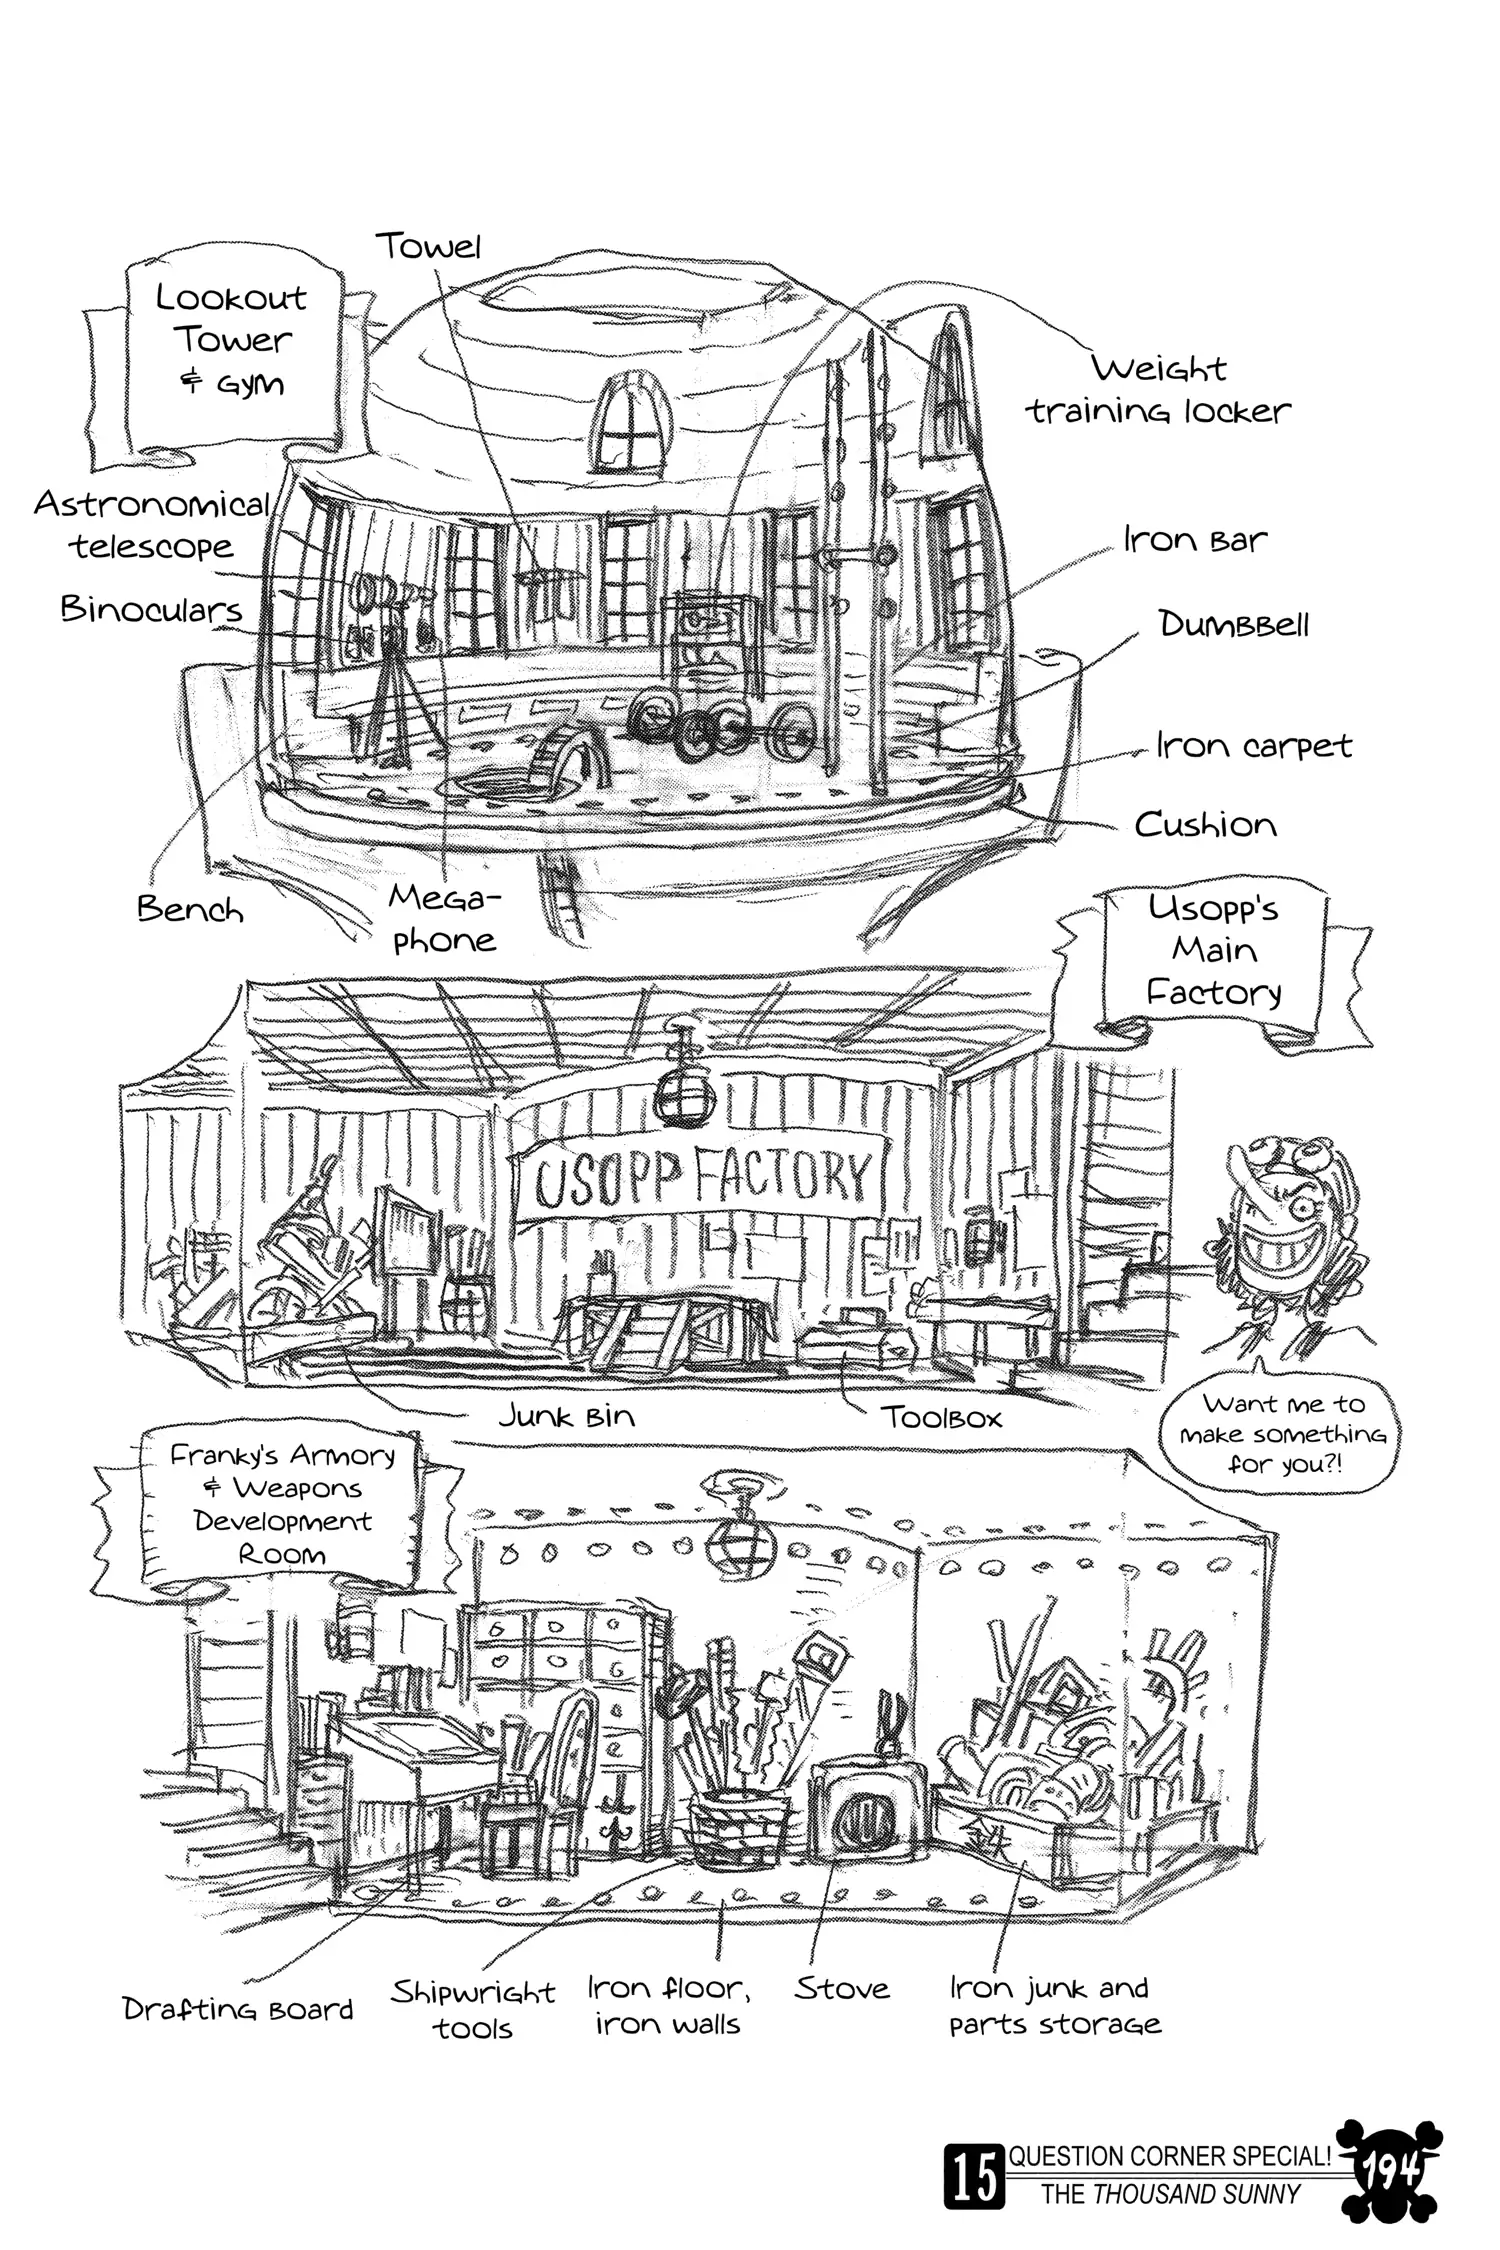 Towel
Lookout
Tower
& Gym
Weight
training locker
Astronomical
telescope
Iron bar
Binoculars
Dumbbell
Iron carpet
Cushion
Bench
Mega-
phone
Usopp's
Main
Factory
USOPP FACTORY
Junk bin
Toolbox
Want me to
make something
for you?!
Franky's Armory
& Weapons
Development
Room
Drafting board
Shipwright
tools
Iron floor,
iron walls
Stove
Iron junk and
parts storage
15
QUESTION CORNER SPECIAL!
THE THOUSAND SUNNY
194